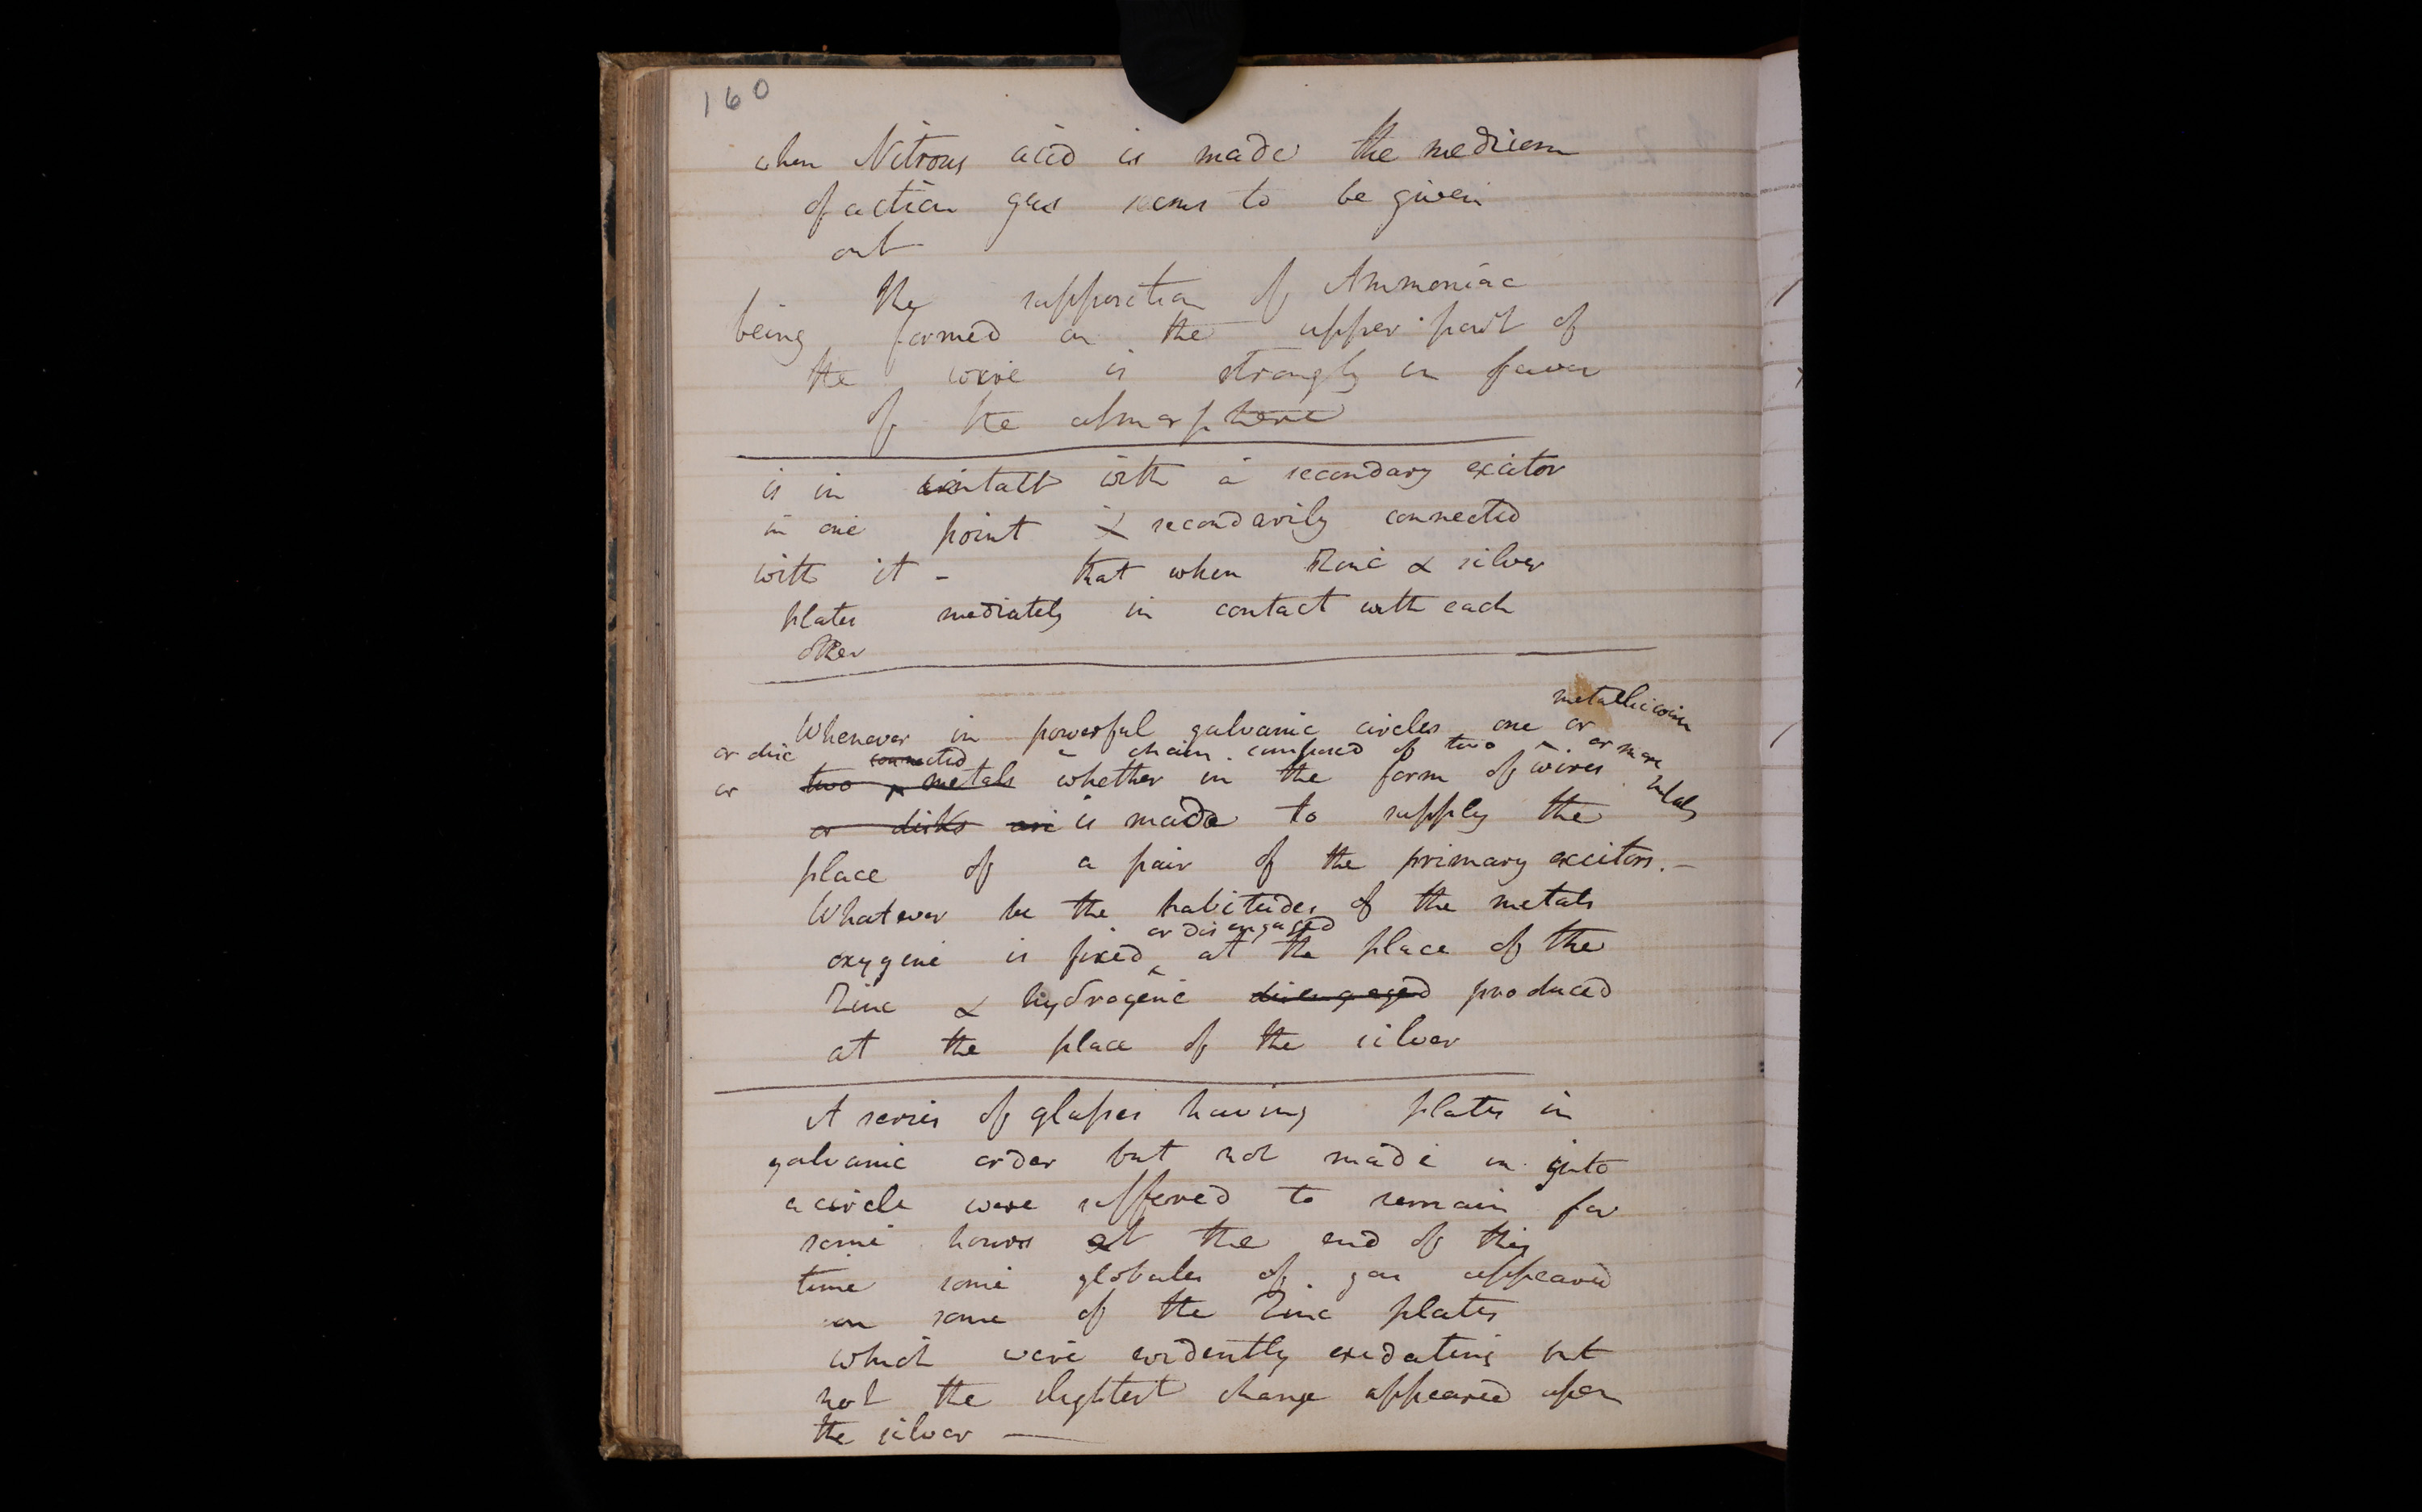 160
when Nitrous acid is made the medium
of action gas seems to be given
out
the supposition of Ammoniac
being formed on the upper part of
the wire is strongly in favor
of the atmosphere
is in contact with a secondary excitor
in one point & secondarily connected
with it - that when Zinc & silver
plates mediately in contact with each
other
metallic wire
Whenever in powerful galvanic circles one or
or disc connected a chain composed of two or more
or two metals whether in the form of wires metals
or disks are is made to supply the
place of a pair of the primary excitors. -
Whatever be the habitudes of the metals
or disengaged
oxygene is fixed at the place of the
Zinc & hydrogene disengaged produced
at the place of the silver
A series of glasses having plates in
galvanic order but not made in into
a circle were suffered to remain for
some hours at the end of this
time some globules of gas appeared
on some of the Zinc plates
which were evidently oxidating but
not the slightest change appeared upon
the silver —